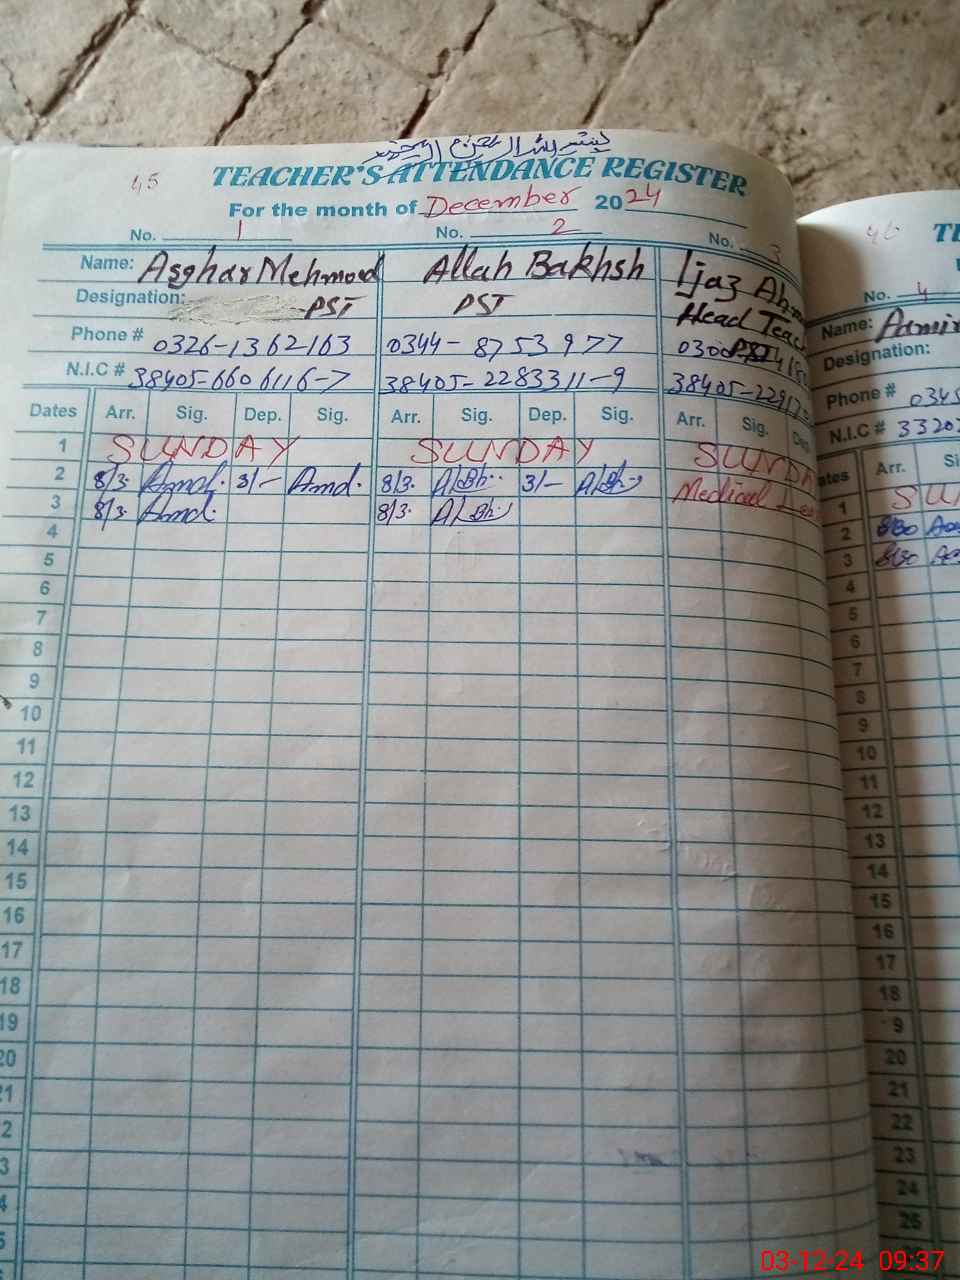 بسم اللہ الرحمن الرحیم
45
TEACHER'S ATTENDANCE REGISTER
For the month of December 2024
No. 1 No. 2 No. 3
Name: Asghar Mehmood Allah Bakhsh Ijaz
Designation: PST PST Head
Phone # 0326-1362163 0344-8753977
N.I.C # 38405-6606116-7 38405-2283311-9
Dates Arr. Sig. Dep. Sig. Arr. Sig. Dep. Sig. Arr. Sig.
1 SUNDAY SUNDAY
2 8/3. Amd. 3/- Amd. 8/3. A/Bh. 3/- A/Bh. Medical
3 8/3. Amd. 8/3. A/Bh.
4
5
6
7
8
9
10
11
12
13
14
15
16
17
18
19
20
46
No. 4
Name:
Designation:
Phone #
N.I.C #
Arr.
1
2 8/30
3 8/30
4
5
6
7
8
9
10
11
12
13
14
15
16
17
18
9
20
21
22
23
24
25
03-12-24 09:37